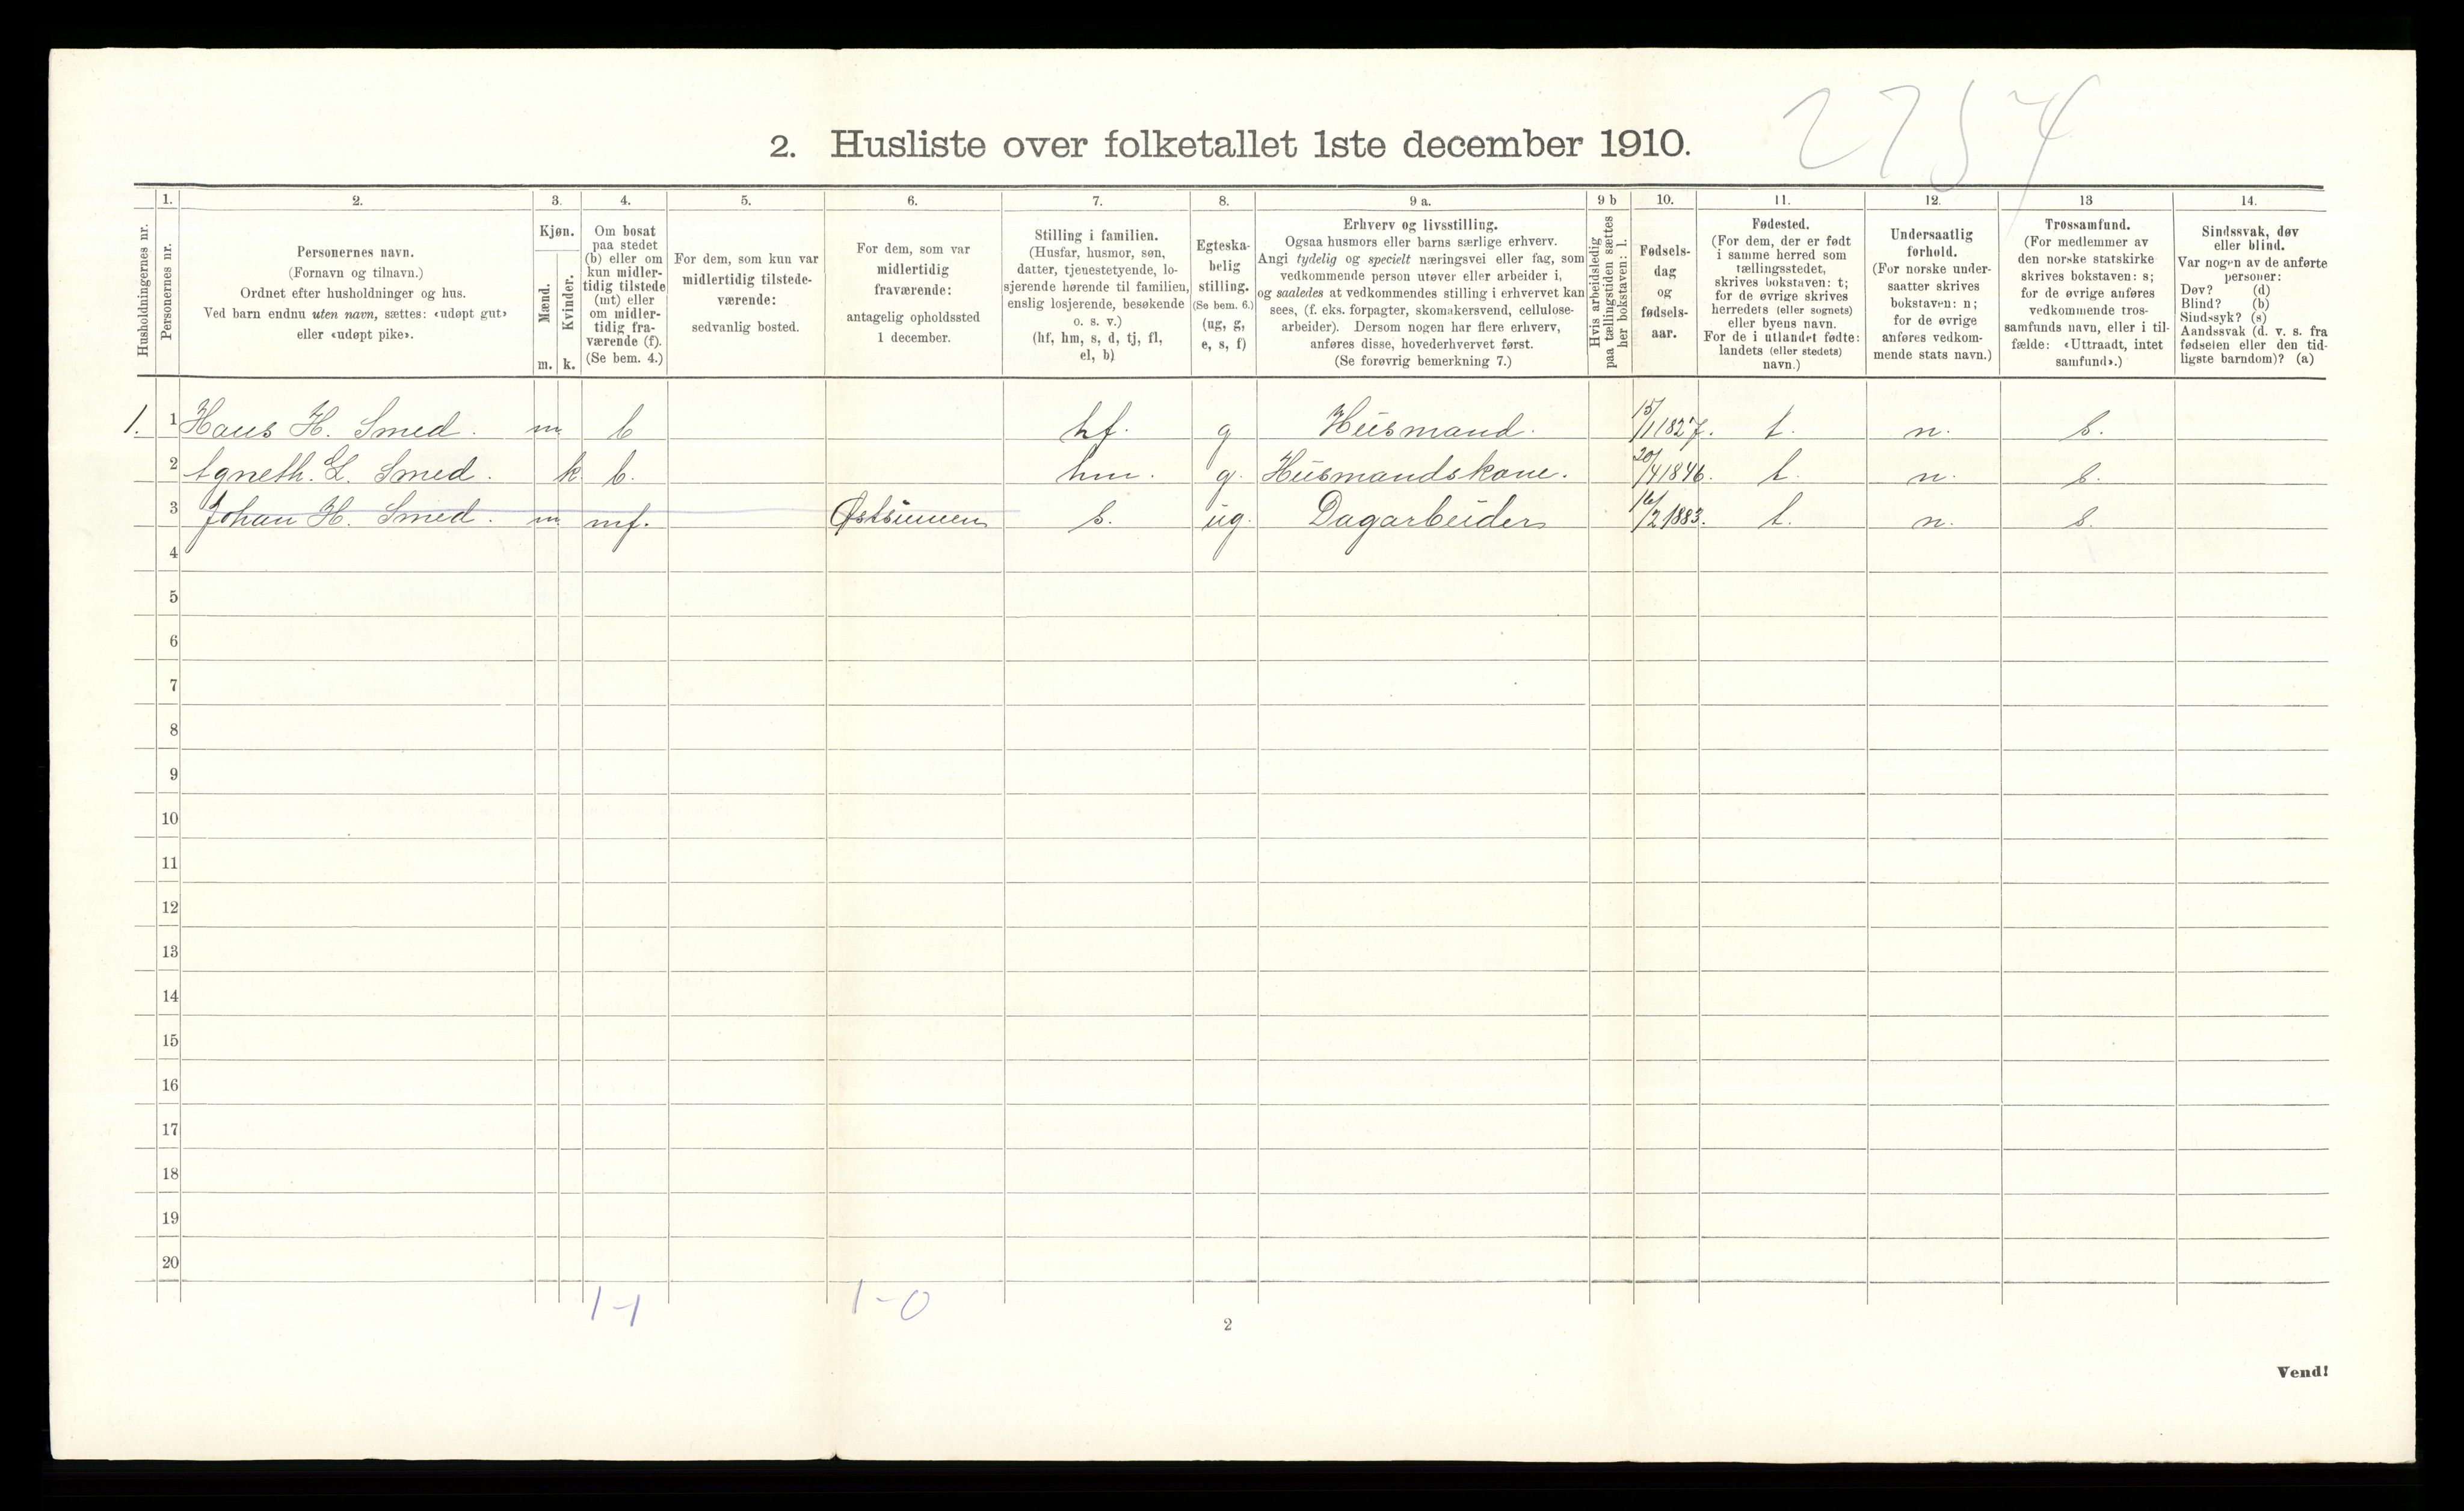 2757
2. Husliste over folketallet 1ste december 1910.
Husholdningernes nr.
1.
Personernes nr.
2.
Personernes navn.
(Fornavn og tilnavn.)
Ordnet efter husholdninger og hus.
Ved barn endnu uten navn, sættes: «udøpt gut»
eller «udøpt pike».
3.
Kjøn.
Mænd.
Kvinder.
m. k.
4.
Om bosat
paa stedet
(b) eller om
kun midler-
tidig tilstede
(mt) eller
om midler-
tidig fra-
værende (f).
(Se bem. 4.)
5.
For dem, som kun var
midlertidig tilstede-
værende:
sedvanlig bosted.
6.
For dem, som var
midlertidig
fraværende:
antagelig opholdssted
1 december.
7.
Stilling i familien.
(Husfar, husmor, søn,
datter, tjenestetyende, lo-
sjerende hørende til familien,
enslig losjerende, besøkende
o. s. v.)
(hf, hm, s, d, tj, fl,
el, b)
8.
Egteska-
belig
stilling.
(Se bem. 6.)
(ug, g,
e, s, f)
9 a.
Erhverv og livsstilling.
Ogsaa husmors eller barns særlige erhverv.
Angi tydelig og specielt næringsvei eller fag, som
vedkommende person utøver eller arbeider i,
og saaledes at vedkommendes stilling i erhvervet kan
sees, (f. eks. forpagter, skomakersvend, cellulose-
arbeider). Dersom nogen har flere erhverv,
anføres disse, hovederhvervet først.
(Se forøvrig bemerkning 7.)
9 b
Hvis arbeidsledig
paa tællingstiden sættes
her bokstaven: l.
10.
Fødsels-
dag
og
fødsels-
aar.
11.
Fødested.
(For dem, der er født
i samme herred som
tællingsstedet,
skrives bokstaven: t;
for de øvrige skrives
herredets (eller sognets)
eller byens navn.
For de i utlandet fødte:
landets (eller stedets)
navn.)
12.
Undersaatlig
forhold.
(For norske under-
saatter skrives
bokstaven: n;
for de øvrige
anføres vedkom-
mende stats navn.)
13
Trossamfund.
(For medlemmer av
den norske statskirke
skrives bokstaven: s;
for de øvrige anføres
vedkommende tros-
samfunds navn, eller i til-
fælde: «Uttraadt, intet
samfund».)
14.
Sindssvak, døv
eller blind.
Var nogen av de anførte
personer:
Døv? (d)
Blind? (b)
Sindssyk? (s)
Aandssvak (d. v. s. fra
fødselen eller den tid-
ligste barndom)? (a)
1. 1 Hans H. Smed. m b hf. g Husmand. 15/1 1827. t. n. s.
2 Agneth. L. Smed. k. b. hm. g. Husmandskone. 20/4 1846. t. n. s.
3 Johan H. Smed. m mf. Østsinnen s. ug. Dagarbeider 16/2 1883. t. n. s.
4
5
6
7
8
9
10
11
12
13
14
15
16
17
18
19
20
1-1 1-0
2
Vend!